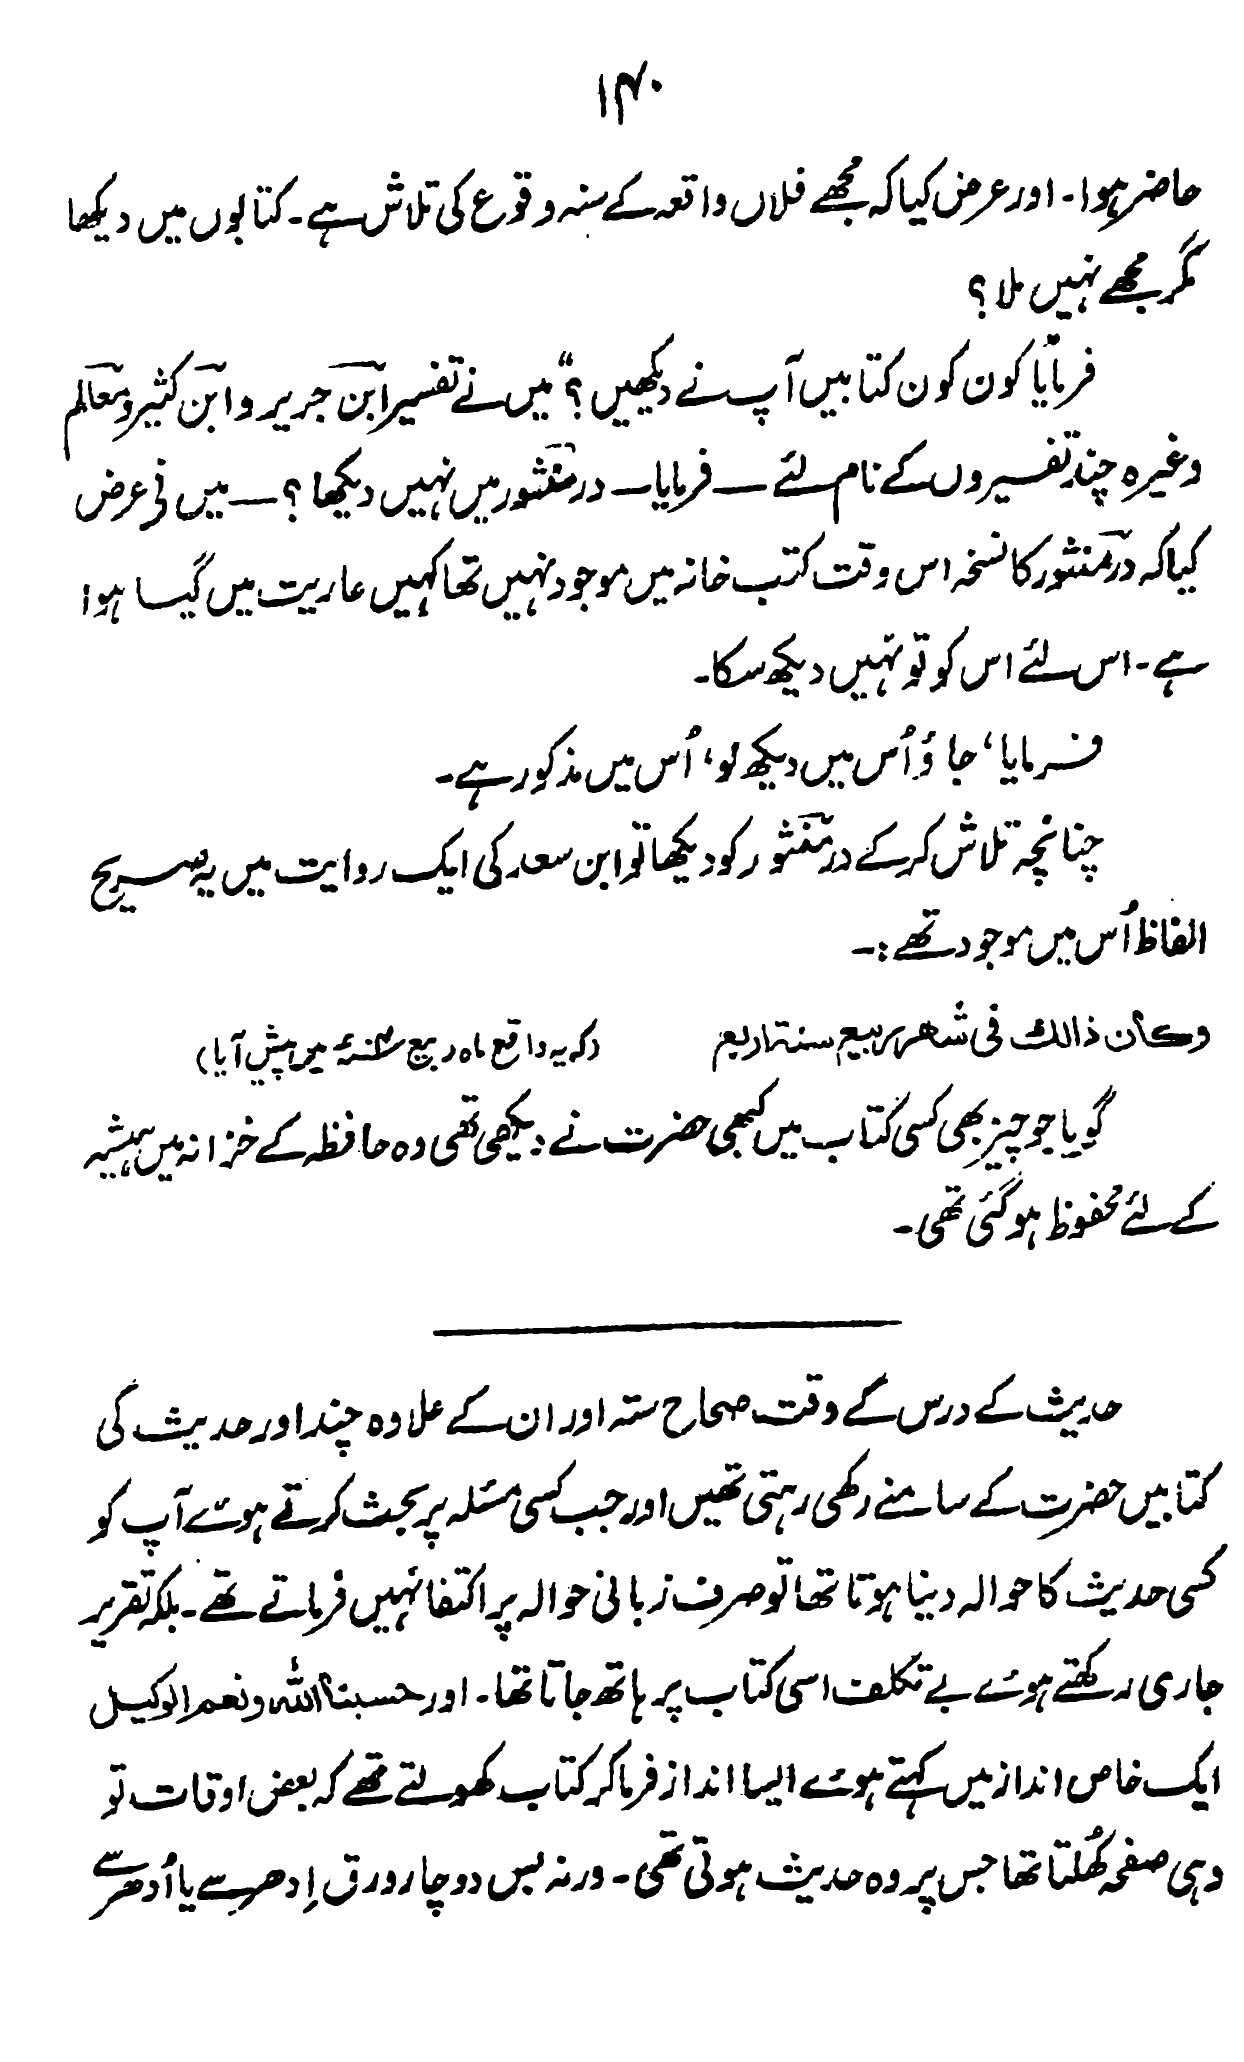 ۱۴۰
حاضر ہوا۔ اور عرض کیا کہ مجھے فلاں واقعہ کے سنہ وقوع کی تلاش ہے۔ کتابوں میں دیکھا
مگر مجھے نہیں ملا؟
فرمایا کون کون کتابیں آپ نے دیکھیں؟“ میں نے تفسیر ابن جریر و ابن کثیر و معالم
وغیرہ چند تفسیروں کے نام لئے — فرمایا — درمنثور میں نہیں دیکھا؟ — میں نے عرض
کیا کہ درمنثور کا نسخہ اس وقت کتب خانہ میں موجود نہیں تھا کہیں عاریت میں گیا ہوا
ہے۔ اس لئے اس کو تو نہیں دیکھ سکا۔
فرمایا، جاؤ اُس میں دیکھ لو، اُس میں مذکور ہے۔
چنانچہ تلاش کرکے درمنثور کو دیکھا تو ابن سعد کی ایک روایت میں یہ صریح
الفاظ اُس میں موجود تھے:۔
وكان ذالك فى شهر ربيع سنة اربع (کہ یہ واقع ماہ ربیع ۴ سنہ میں پیش آیا)
گویا جو چیز بھی کسی کتاب میں کبھی حضرت نے دیکھی تھی وہ حافظہ کے خزانہ میں ہمیشہ
کے لئے محفوظ ہوگئی تھی۔
حدیث کے درس کے وقت صحاح ستہ اور ان کے علاوہ چند اور حدیث کی
کتابیں حضرت کے سامنے رکھی رہتی تھیں اور جب کسی مسئلہ پر بحث کرتے ہوئے آپ کو
کسی حدیث کا حوالہ دینا ہوتا تھا تو صرف زبانی حوالہ پر اکتفا نہیں فرماتے تھے۔ بلکہ تقریر
جاری رکھتے ہوئے بے تکلف اسی کتاب پر ہاتھ جاتا تھا۔ اور حسبنا اللہ ونعم الوکیل
ایک خاص انداز میں کہتے ہوئے ایسا انداز فرما کر کتاب کھولتے تھے کہ بعض اوقات تو
وہی صفحہ کُھلتا تھا جس پر وہ حدیث ہوتی تھی۔ ورنہ بس دو چار ورق اِدھر سے یا اُدھر سے